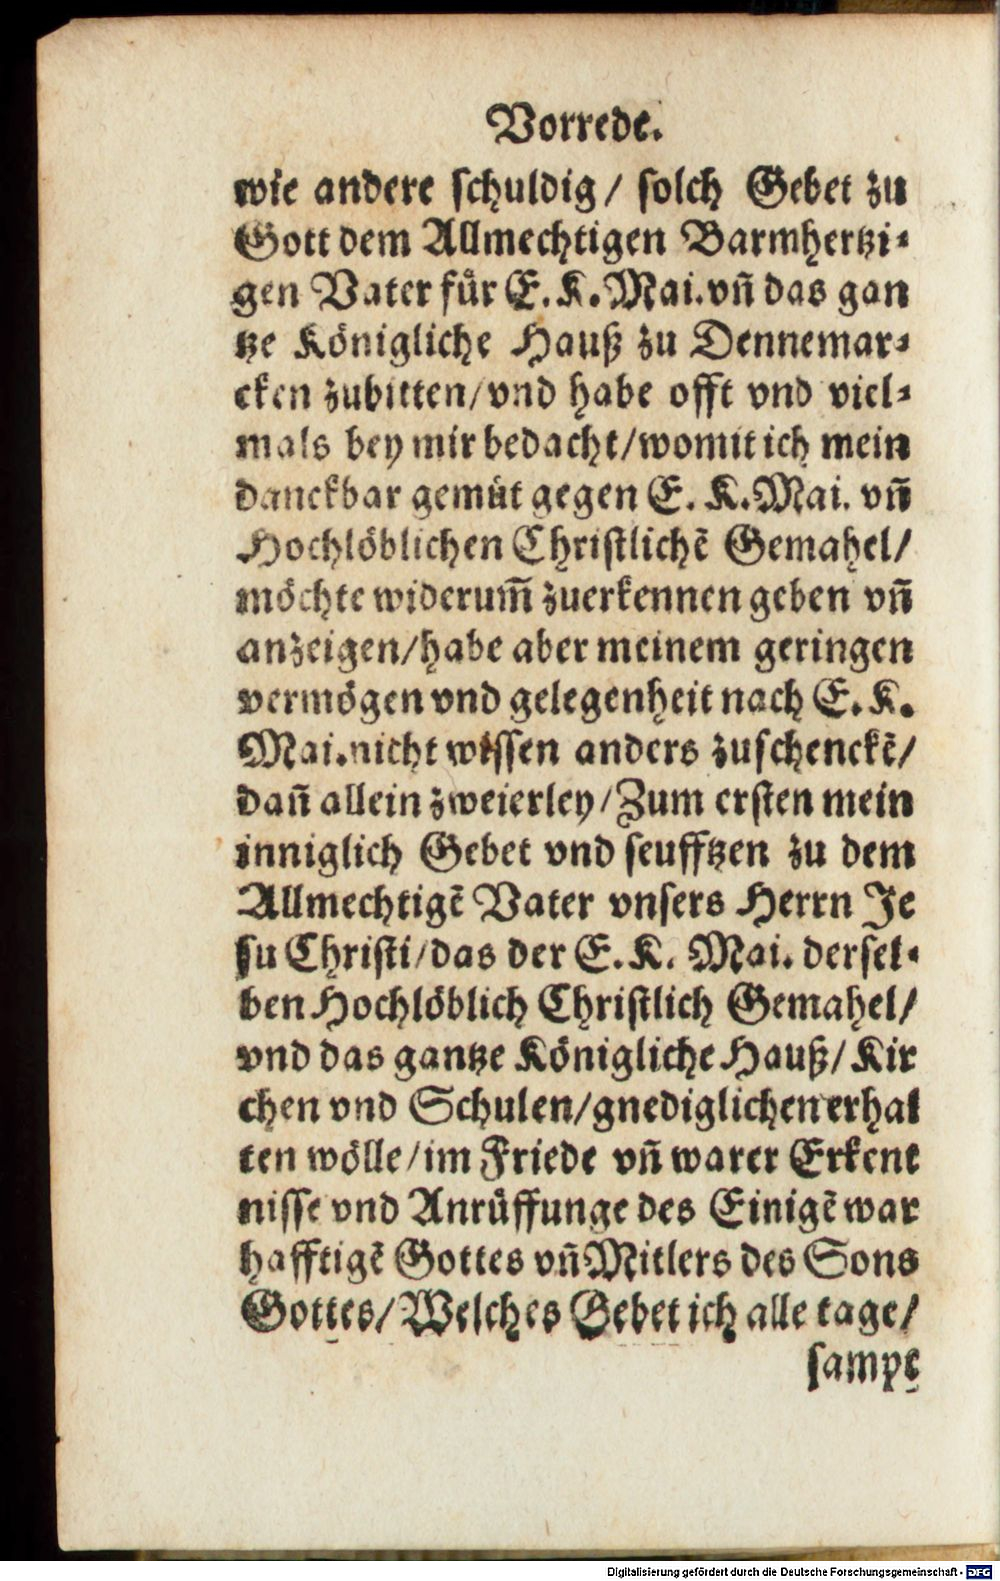 Vorrede.
wie andere schuldig/ solch Gebet zu
Gott dem Allmechtigen Barmhertzi⸗
gen Vater für E. K. Mai. vñ das gan
tze Königliche Hauß zu Dennemar⸗
cken zubitten/vnd habe offt vnd viel⸗
mals bey mir bedacht/womit ich mein
danckbar gemüt gegen E. K. Mai. vñ
Hochlöblichen Christlichẽ Gemahel/
möchte widerum̃ zuerkennen geben vñ
anzeigen/habe aber meinem geringen
vermögen vnd gelegenheit nach E. K.
Mai. nicht wissen anders zuschenckẽ/
dañ allein zweierley/Zum ersten mein
inniglich Gebet vnd seufftzen zu dem
Allmechtigẽ Vater vnsers Herrn Je
su Christi/das der E. K. Mai. dersel⸗
ben Hochlöblich Christlich Gemahel/
vnd das gantze Königliche Hauß/ Kir
chen vnd Schulen/gnediglichen erhal
ten wölle/im Friede vñ warer Erkent
nisse vnd Anrüffunge des Einigẽ war
hafftigẽ Gottes vñ Mitlers des Sons
Gottes/ Welches Gebet ich alle tage/
sampt
Digitalisierung gefördert durch die Deutsche Forschungsgemeinschaft - DFG